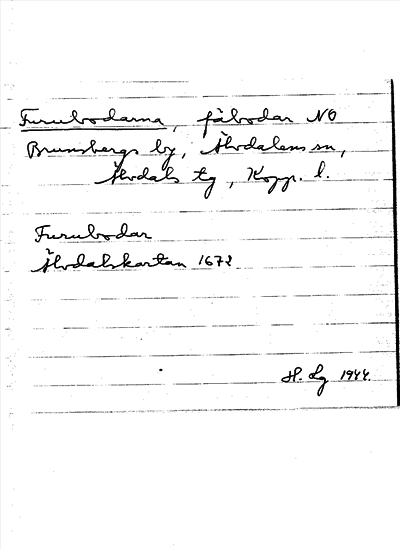 Furubodarna, fäbodar NO
Brunnsbergs by, Älvdalens sn,
Älvdals tg, Kopp. l.
Furubodar
Älvdalskartan 1672
H. Lg 1944.